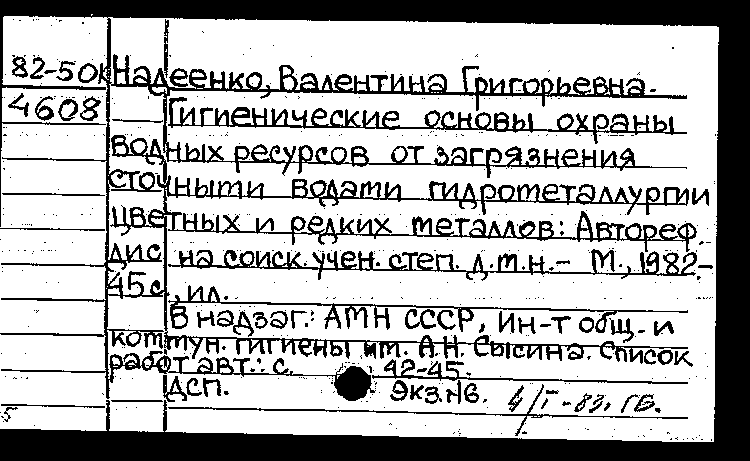 82-5ОК Надеенко, Валентина Григорьевна.
4608 Гигиенические основы охраны
водных ресурсов от загрязнения
сточными водами гидрометаллургии
цветных и редких металлов: Автореф.
дис на соиск. учен. степ. д.м.н.- М., 1982.-
45с., ил.
В надзаг.: АМН СССР, Ин-т общ. и
коммун. гигиены им. А.Н. Сысина. Список
работ авт.: с. 42-45.
ДСП. Экз.№6. 4/I-83. ГБ.
5